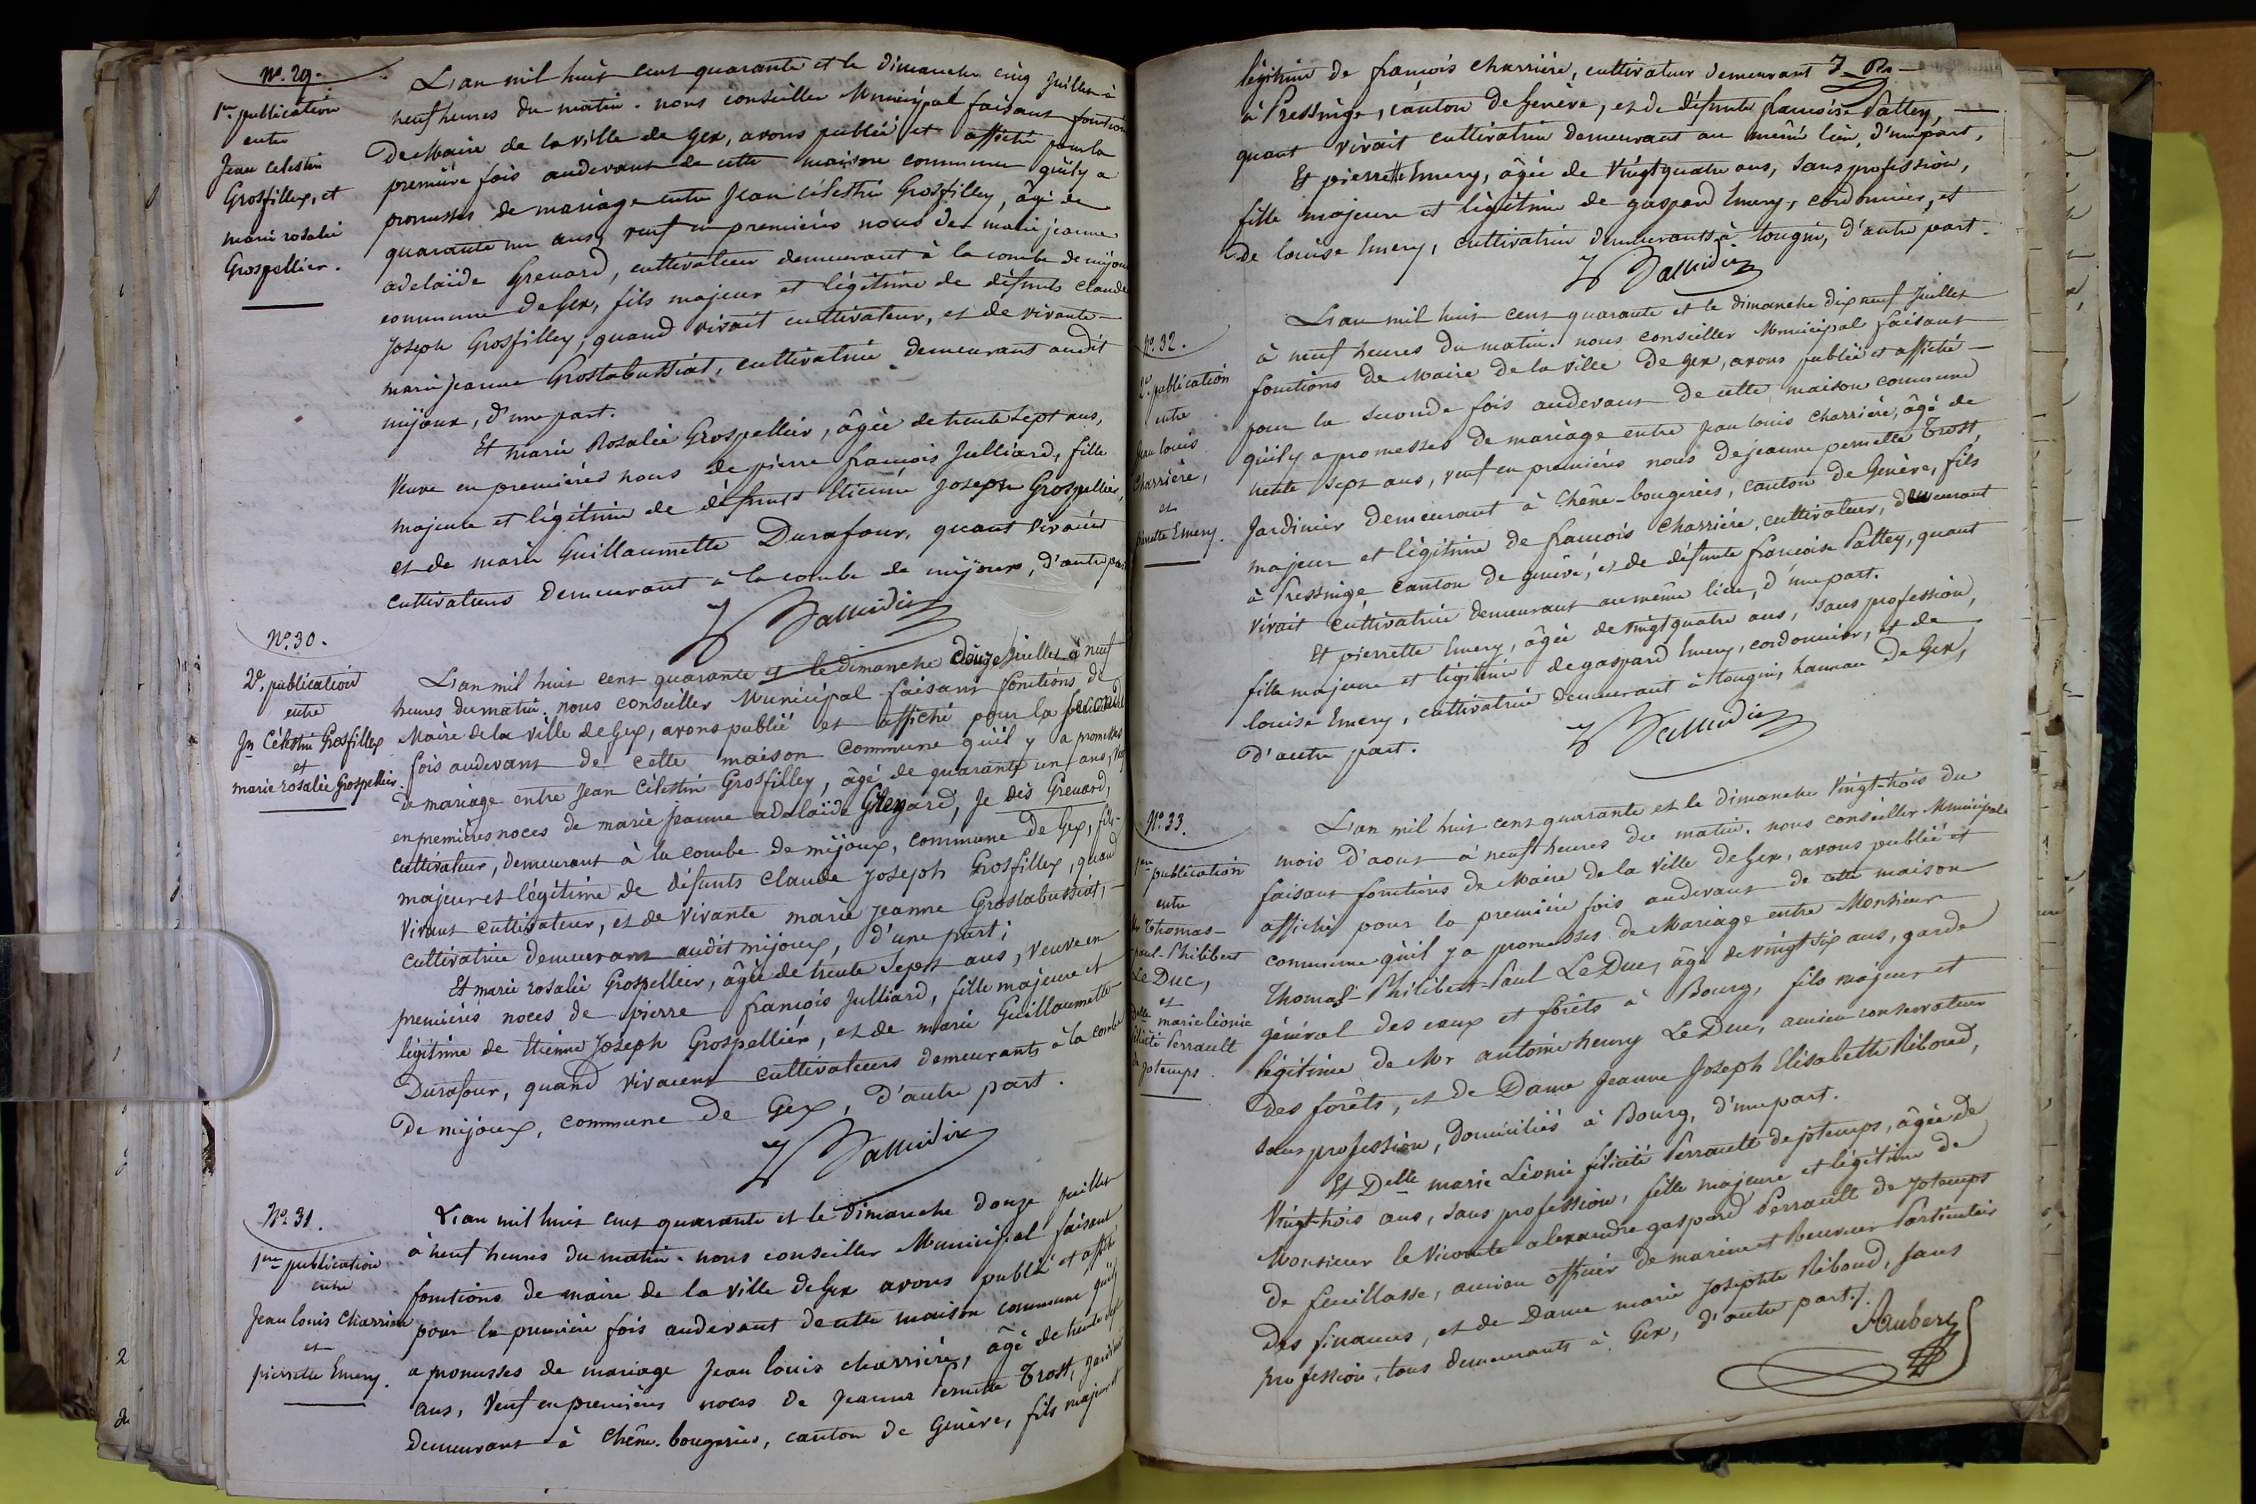 Nº. 29.
1re publication
entre
Jean Célestin
Grosfilley, et
marie rosalie
Grospellier.
L'an mil huit cent quarante et le dimanche cinq Juillet à
neuf heures du matin. nous conseiller Municipal faisant fonctions
de Maire de la ville de Gex, avons publié et affiché pour la
première fois audevant de cette maison commune qu'il y a
promesses de mariage entre Jean Célestin Grosfilley, âgé de
quarante un ans, veuf en premières noces de marie jeanne
adelaïde Grenard, cultivateur demeurant à la combe de mijoux
commune de Gex, fils majeur et légitime de défunts Claude
Joseph Grosfilley, quand vivait cultivateur, et de vivante
marie jeanne Grostabussiat, cultivatrice demeurant audit
mijoux, d'une part.
Et marie Rosalie Grospellier, âgée de trente sept ans,
Veuve en premières noces de pierre françois Julliard, fille
majeure et légitime de défunts Etienne Joseph Grospellier,
et de marie Guillaumette Durafour, quant vivaient
cultivateurs demeurant à la combe de mijoux, d'autre part
Nº. 30.
2e. publication
entre
Jn Célestin Grosfilley
et
marie rosalie Grospellier.
L'an mil huit cent quarante et le dimanche douze juillet à neuf
heures du matin. nous conseiller Municipal faisant fonctions de
Maire de la ville de Gex, avons publié et affiché pour la seconde
fois audevant de cette maison commune qu'il y a promesses
de mariage entre Jean Célestin Grosfilley, âgé de quarante un ans, veuf
en premières noces de marie Jeanne adelaïde Grenard, Je dis Grenard,
cultivateur, demeurant à la combe de mijoux, commune de Gex, fils
majeur et légitime de défunts Claude Joseph Grosfilley, quand
vivait cultivateur, et de vivante marie Jeanne Grostabussiat,
cultivatrice demeurant audit mijoux, d'une part;
Et marie rosalie Grospellier, âgée de trente sept ans, veuve en
premières noces de pierre françois Julliard, fille majeure et
légitime de Etienne Joseph Grospellier, et de marie Guillaumette
Durafour, quand vivaient cultivateurs demeurants à la combe
de mijoux, commune de Gex, d'autre part.
Nº. 31.
1re publication
entre
Jean louis Charrière
et
pierrette Emery.
L'an mil huit cent quarante et le dimanche douze juillet
à neuf heures du matin. nous conseiller Municipal faisant
fonctions de maire de la ville de Gex avons publié et affiché
pour la première fois audevant de cette maison commune qu'il y
a promesses de mariage Jean louis charrière, âgé de trente sept
ans, Veuf en premières noces de Jeanne Pernette Trost, Jardinier
demeurant à Chêne-bougeries, canton de Genève, fils majeur et
légitime de françois charrière, cultivateur demeurant
à Pressinge, canton de Genève, et de défunte françoise Pattey,
quant vivait cultivatrice demeurant au même lieu, d'une part,
Et pierrette Emery, âgée de Vingt quatre ans, sans profession,
fille majeure et légitime de gaspard Emery, cordonnier, et
de louise Emery, cultivatrice demeurants à tougin, d'autre part.
Nº. 32.
2e. publication
entre
Jean louis
Charrière,
et
pierrette Emery.
L'an mil huit cent quarante et le dimanche dix neuf Juillet
à neuf heures du matin. nous conseiller Municipal faisant
fonctions de Maire de la ville de Gex, avons publié et affiché
pour la seconde fois audevant de cette maison commune
qu'il y a promesses de mariage entre jean louis Charrière, âgé de
trente sept ans, veuf en premières noces de jeanne pernette Trost,
Jardinier demeurant à Chêne-bougeries, canton de Genève, fils
majeur et légitime de françois Charrière, cultivateur, demeurant
à Pressinge canton de genève, et de défunte françoise Pattey, quant
vivait cultivatrice demeurant au même lieu, d'une part.
Et pierrette Emery, âgée de vingt quatre ans, sans profession,
fille majeure et légitime de gaspard Emery, cordonnier, et de
louise Emery, cultivatrice demeurant à tougin, hameau de Gex,
d'autre part.
Nº. 33.
1ere publication
entre
Mr Thomas-
paul-Philibert
Le Duc,
et
Delle marie léonie
félicité Perrault
de jotemps.
L'an mil huit cent quarante et le dimanche Vingt-trois du
mois d'aout à neuf heures du matin. nous conseiller Municipale
faisant fonctions de Maire de la ville de Gex, avons publié et
affiché pour la première fois audevant de cette maison
commune qu'il y a promesses de Mariage entre Monsieur
Thomas-Philibert-Paul Le Duc, âgé de vingt six ans, garde
général des eaux et forêts à Bourg, fils majeur et
légitime de Mr antoine henry Le Duc, ancien conservateur
des forêts, et de Dame Jeanne Joseph Elisabette Riboud,
sans profession, domiciliés à Bourg, d'une part.
Et Delle marie Léonie félicité Perrault de jotemps, âgée de
Vingt-trois ans, sans profession, fille majeure et légitime de
Monsieur le Vicomte alexandre gaspard Perrault de Jotemps
de feuillasse, ancien officier de marine et Receveur Particulier
des finances, et de Dame marie Josephte Riboud, sans
profession, tous demeurants à Gex, d'autre part./.